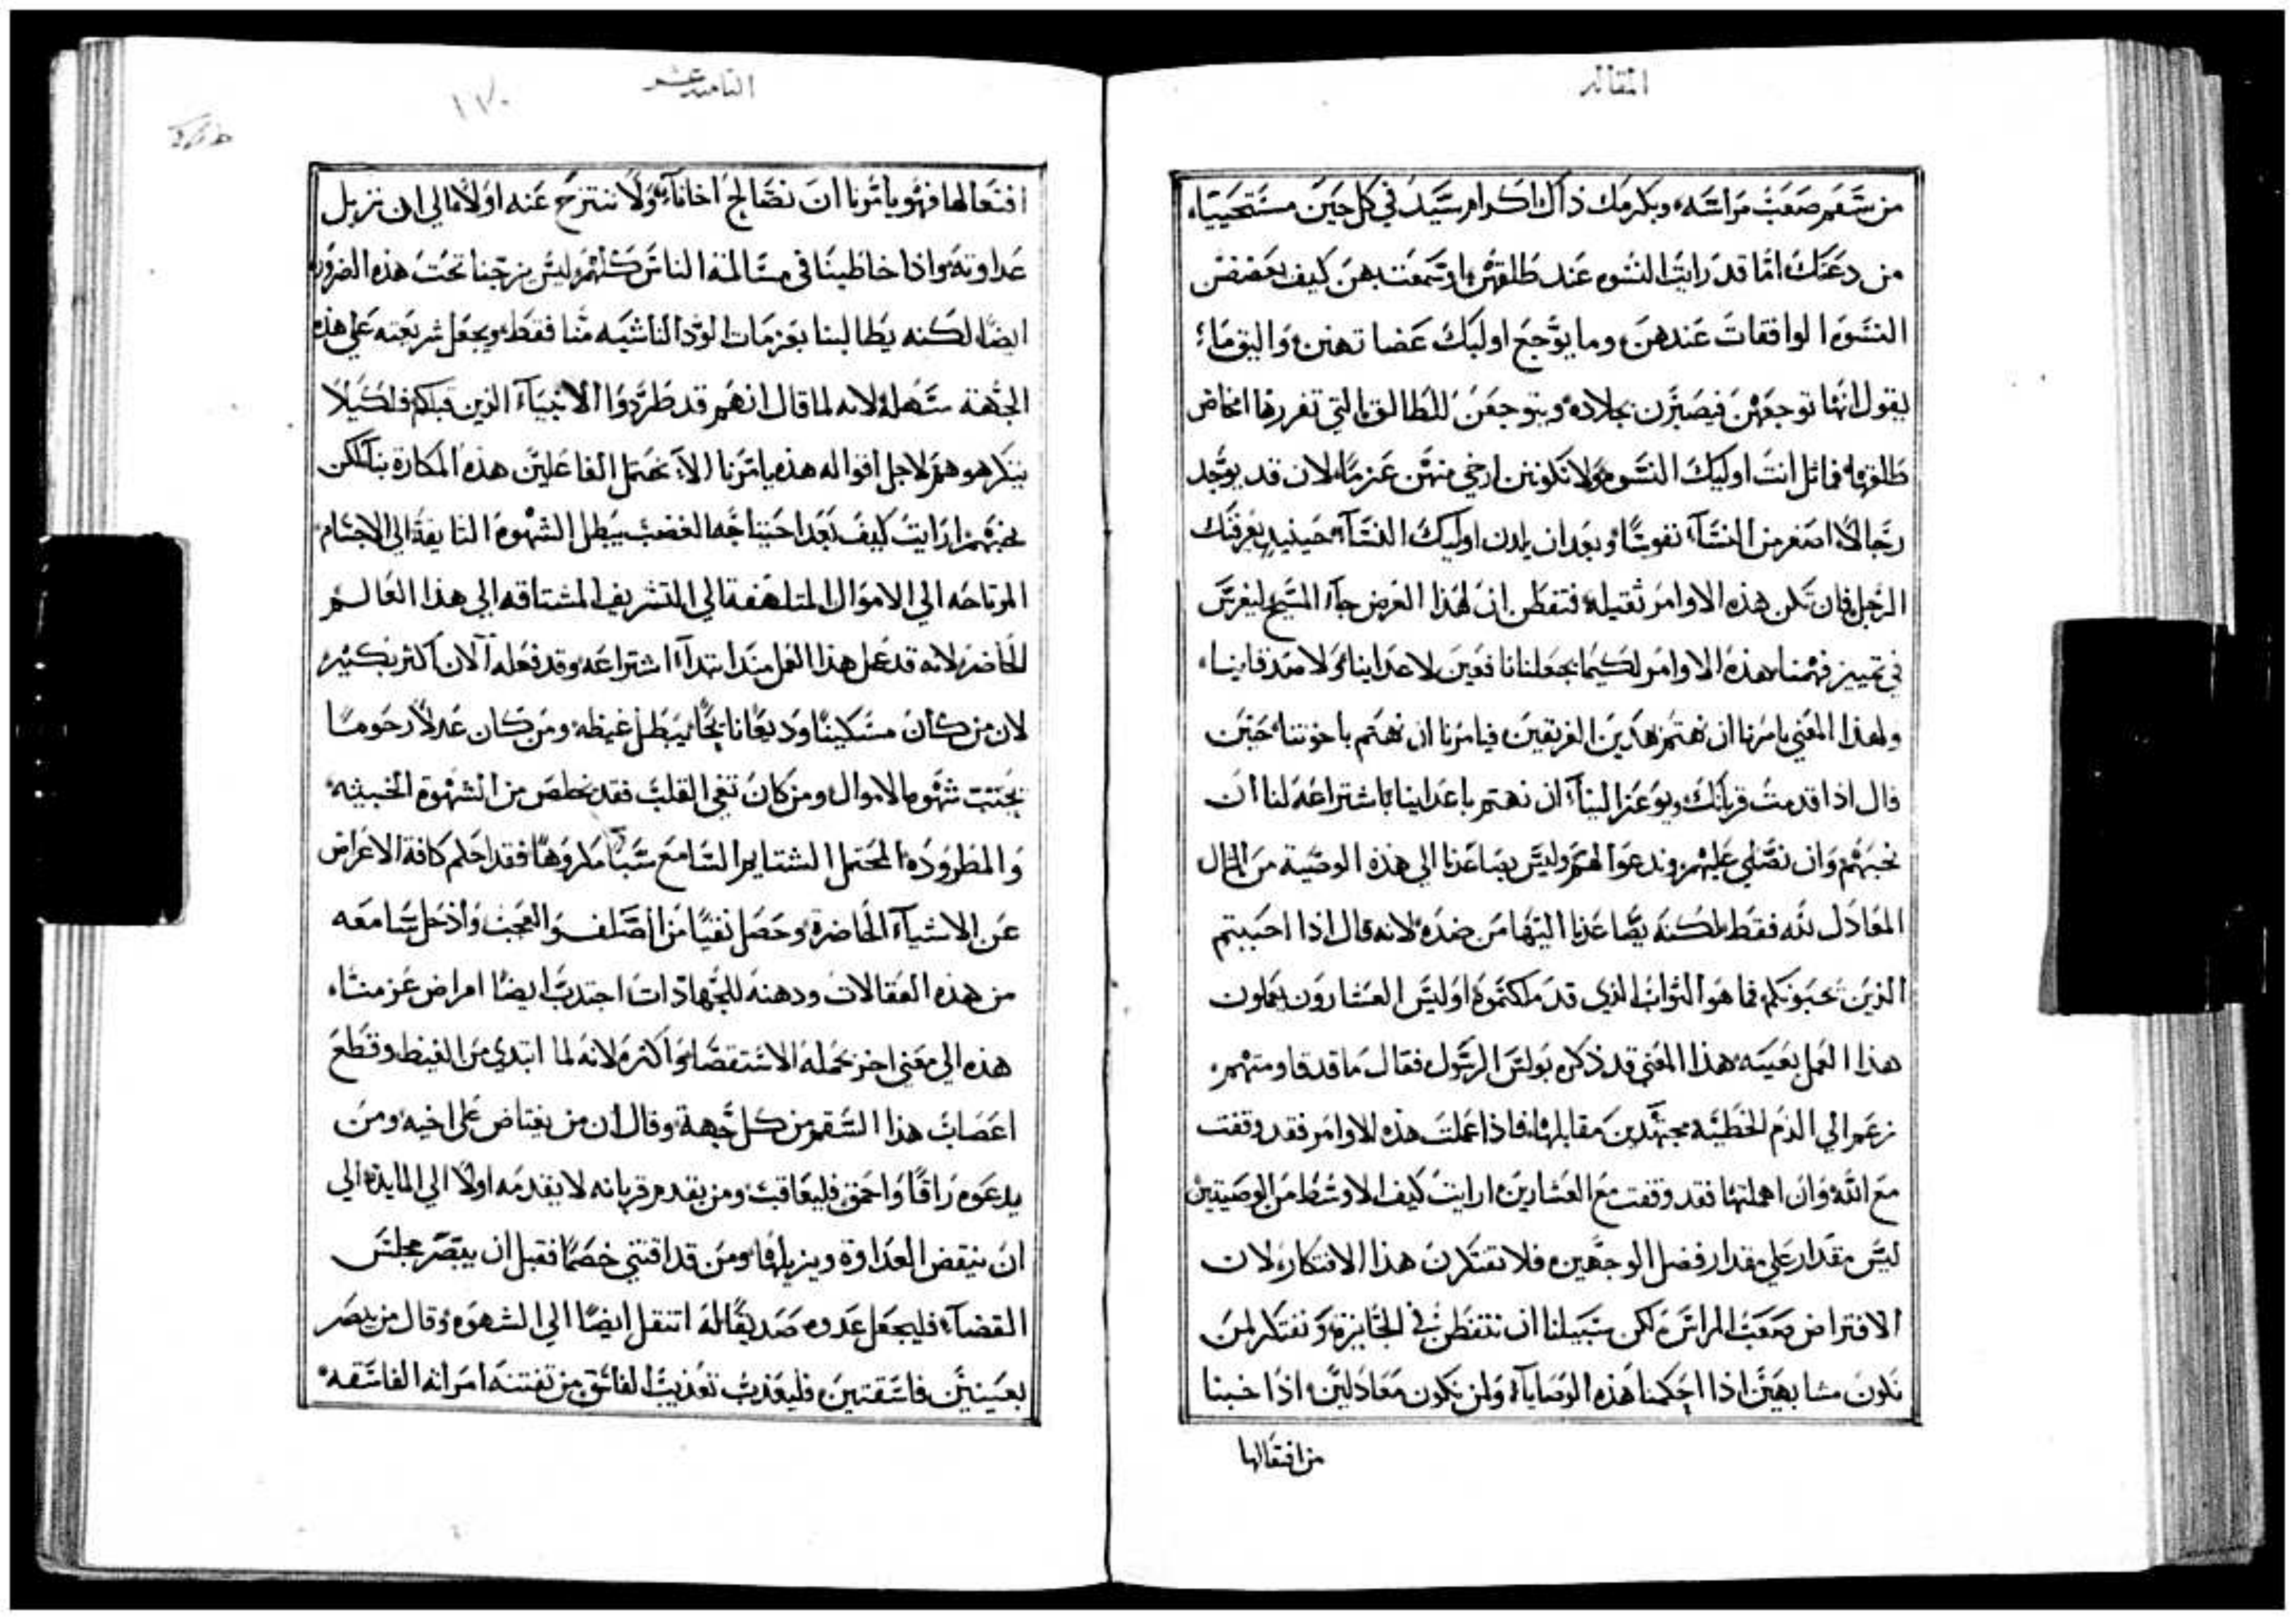 المقاله
من سقم صعب مراسه، ويكرمك ذاك اكرام سيد في كل حين مستحييا
من دعتك اما قد رايت النسوه عند طلقهن اذ سمعت بهن كيف يعضضن
النسوه الواقفات عندهن وما يوجع اوليك عضاتهن واليق ما
يقول انها توجعهن فيصبرن بجلاده ويتوجعن للطالق التي تغررها امخاض
طلقها فماثل انت اوليك النسوه ولا تكونن ارخي منهن عزما لان قد يوجد
رجالا اصغر من النسآ نفوسا وبعد ان يلدن اوليك النسآ حينيد يعرفنك
الرجل فان تكن هذه الاوامر ثقيله فتفطن ان لهذا الغرض جآ المسيح ليغرس
في تمييز فهمنا هذه الاوامر لكيما يجعلنا نافعين لاعداينا ولاصدقاينا
ولهذا المعني يامرنا ان نهتم بهذين الفريقين فيامرنا ان نهتم باخوتنا حين
قال اذا قدمت قربانك ويوعز الينآ ان نهتم باعداينا باشتراعه لنا ان
نحبهم وان نصلي عليهم وندعوا لهم وليس يصاعدنا الي هذه الوصية من المثال
المعادل لله فقط لكنه يصاعدنا اليها من ضده لانه قال اذا احببتم
الذين يحبونكم فما هو الثواب الذي قد ملكتموه اوليس العشارون يعملون
هذا العمل بعينه هذا المعني قد ذكره بولس الرسول فقال ما قد قاومتهم
زعم الي الدم الخطيه مجتهدين مقابلها فاذا عملت هذه الاوامر فقد وقفت
مع الله وان اهملتها فقد وقفت مع العشارين ارايت كيف الاوسط من الوصيتين
ليس مقدار علي مقدار فضل الوجهين فلا تفتكرن هذا الافتكار لان
الافتراض صعب المراس لكن سبيلنا ان نتفطن في الجايزة ونفتكر لمن
نكون مشابهين اذا احكمنا هذه الوصايا ولمن نكون معادلين اذا خبنا
من افتعالها
الثامنه عشر
١١٧٠
افتعالها فهو يامرنا ان نصالح اخانآ ولا ننتزح عنه اولا الي ان نزيل
عداوته واذا خاطبنا في مسالمة الناس كلهم ليس يزجنا تحت هذه الضروره
ايضا لكنه يطالبنا بعزمات الود الناشيه منا فقط ويجعل شريعته علي هذه
الجهة سهله لانه لما قال انهم قد طردوا الانبيآ الذين قبلكم فلكيلا
يتكرهوهم لاجل اقواله هذه يامرنا الا نحتمل الفاعلين هذه المكاره بنا لكن
نحبهم ارايت كيف يعد احتباجه الغضب يبطل الشهوه التايقة الي الاجسام
المرتاحه الي الاموال المتلهفة الي التشريف المشتاقه الي هذا العالم
الحاضر لانه قد عمل هذا العمل منذ ابتدآ اشتراعه وقد فعله الان اكثر بكثير
لان من كان مسكينا وديعا نايحا يبطل غيظه ومن كان عدلا رحوما
يجتنب شهوه الاموال ومن كان نقي القلب فقد تخلص من الشهوة الخبيثه
والمطروده المحتمل الشتايم السامع سبا مكروها فقد احكم كافة الاعراض
عن الاشيآ الحاضرة وحصل نقيا من الصلف والعجب واذ حل سامعه
من هذه العقالات ودهنه للجهادات اجتذب ايضا امراض عزمنا
هذه الي معني اخر بحمله الاستقصا واكثره لانه لما ابتدي من الغيظ وقطع
اعصاب هذا السقم من كل جهة وقال ان من يغتاض علي اخيه ومن
يدعوه راقا واحمق فليعاقب ومن يقدم قربانه لا يقدمه اولا الي المايده الي
ان ينقض العداوة ويزيلها ومن قد اقتني خصما فقبل ان يبصر مجلس
القضآ فليجعل عدوه صديقا له انتقل ايضا الي الشهوه وقال من بصر
بعينين فاسقتين فليعذب تعذيب الفاسق من تفتنه امرانه الفاسقه